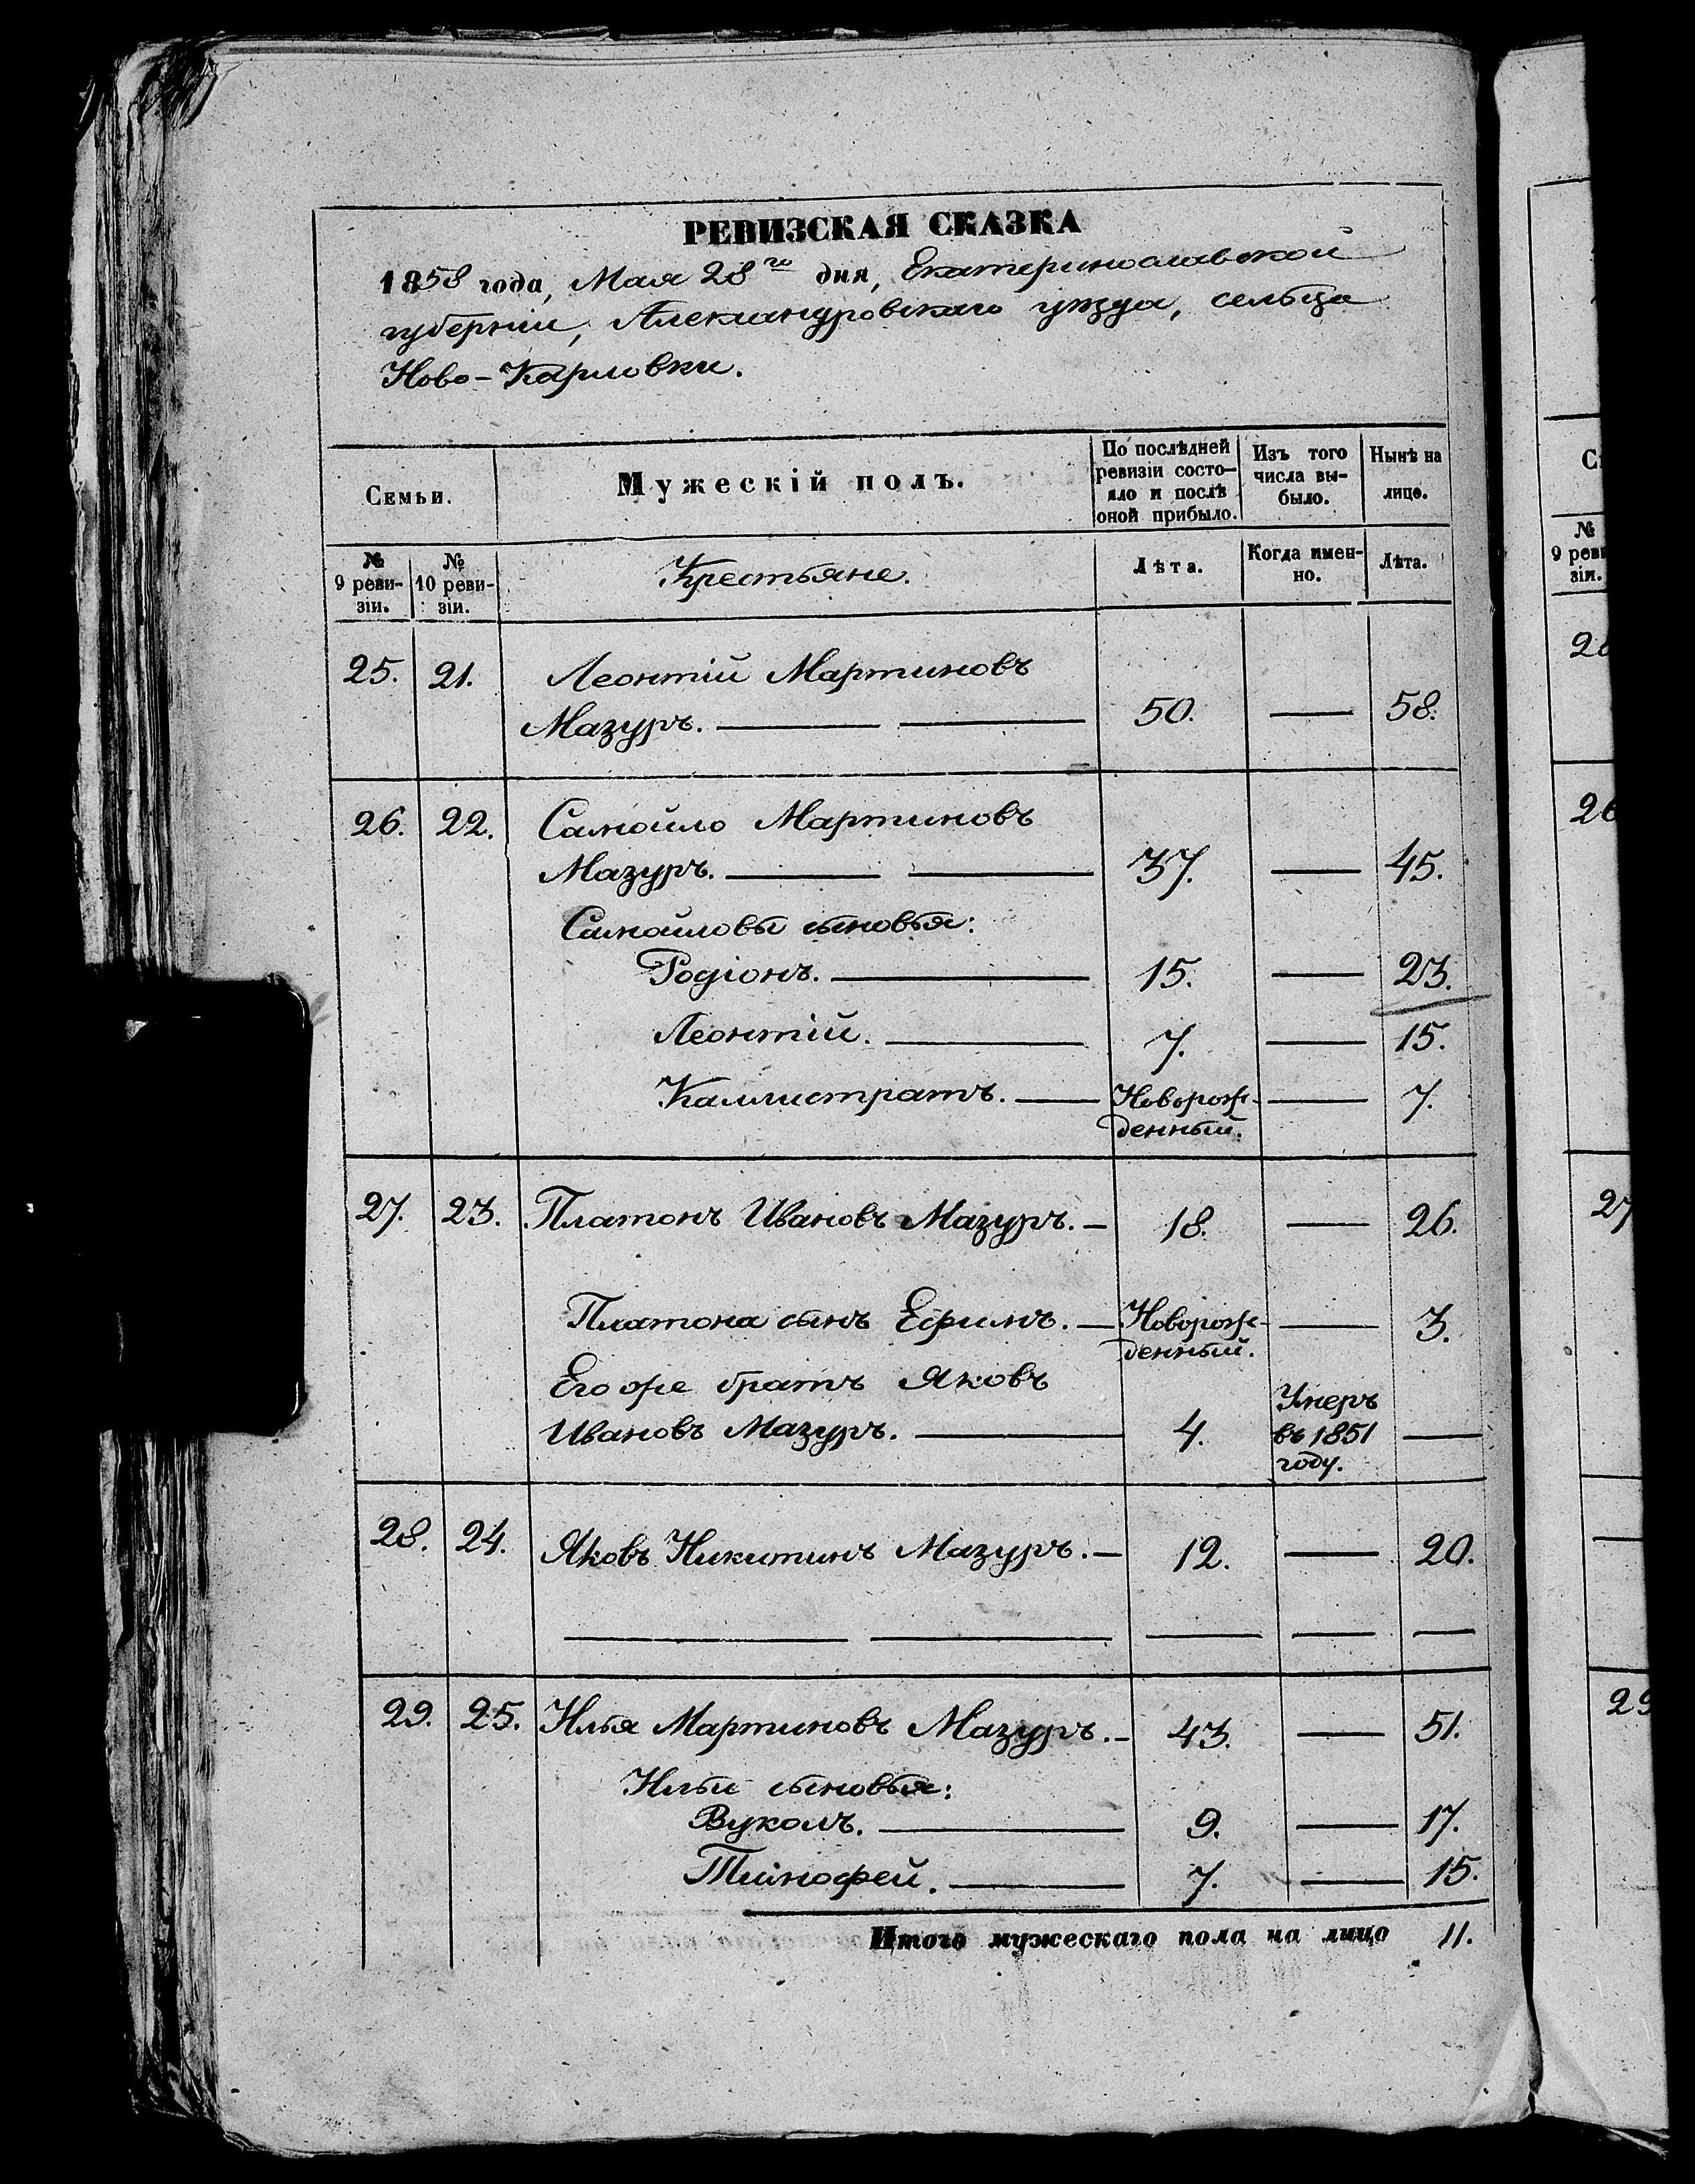 РЕВИЗСКАЯ СКАЗКА
1858 года, Мая 28го дня, Екатеринославской
губернии, Александровскаго уѣзда, сельца
Ново-Карловки.
Семьи.
Мужескій полъ.
По послѣдней
ревизіи состо-
яло и послѣ
оной прибыло.
Изъ того
числа вы-
было.
Нынѣ на
лицо.
№
9 реви-
зіи.
№
10 реви-
зіи.
Крестьяне.
Лѣта.
Когда имен-
но.
Лѣта.
25. 21. Леонтій Мартиновъ
Мазуръ. — — 50. — 58.
26. 22. Самойло Мартиновъ
Мазуръ. — — 37. — 45.
Самойловы сыновья:
Родіонъ. — 15. — 23.
Леонтій. — 7. — 15.
Каллистратъ. — Новорож- — 7.
денный.
27. 23. Платонъ Ивановъ Мазуръ. — 18. — 26.
Платона сынъ Ефимъ. — Новорож- — 3.
денный.
Его же братъ Яковъ
Ивановъ Мазуръ. — 4. Умеръ
въ 1851 —
году.
28. 24. Яковъ Никитинъ Мазуръ. — 12. — 20.
— — — — —
29. 25. Илья Мартиновъ Мазуръ. — 43. — 51.
Ильи сыновья:
Вуколъ. — 9. — 17.
Тимофей. — 7. — 15.
Итого мужескаго пола на лицо 11.
С
№
9 реви
зіи.
26
27
29